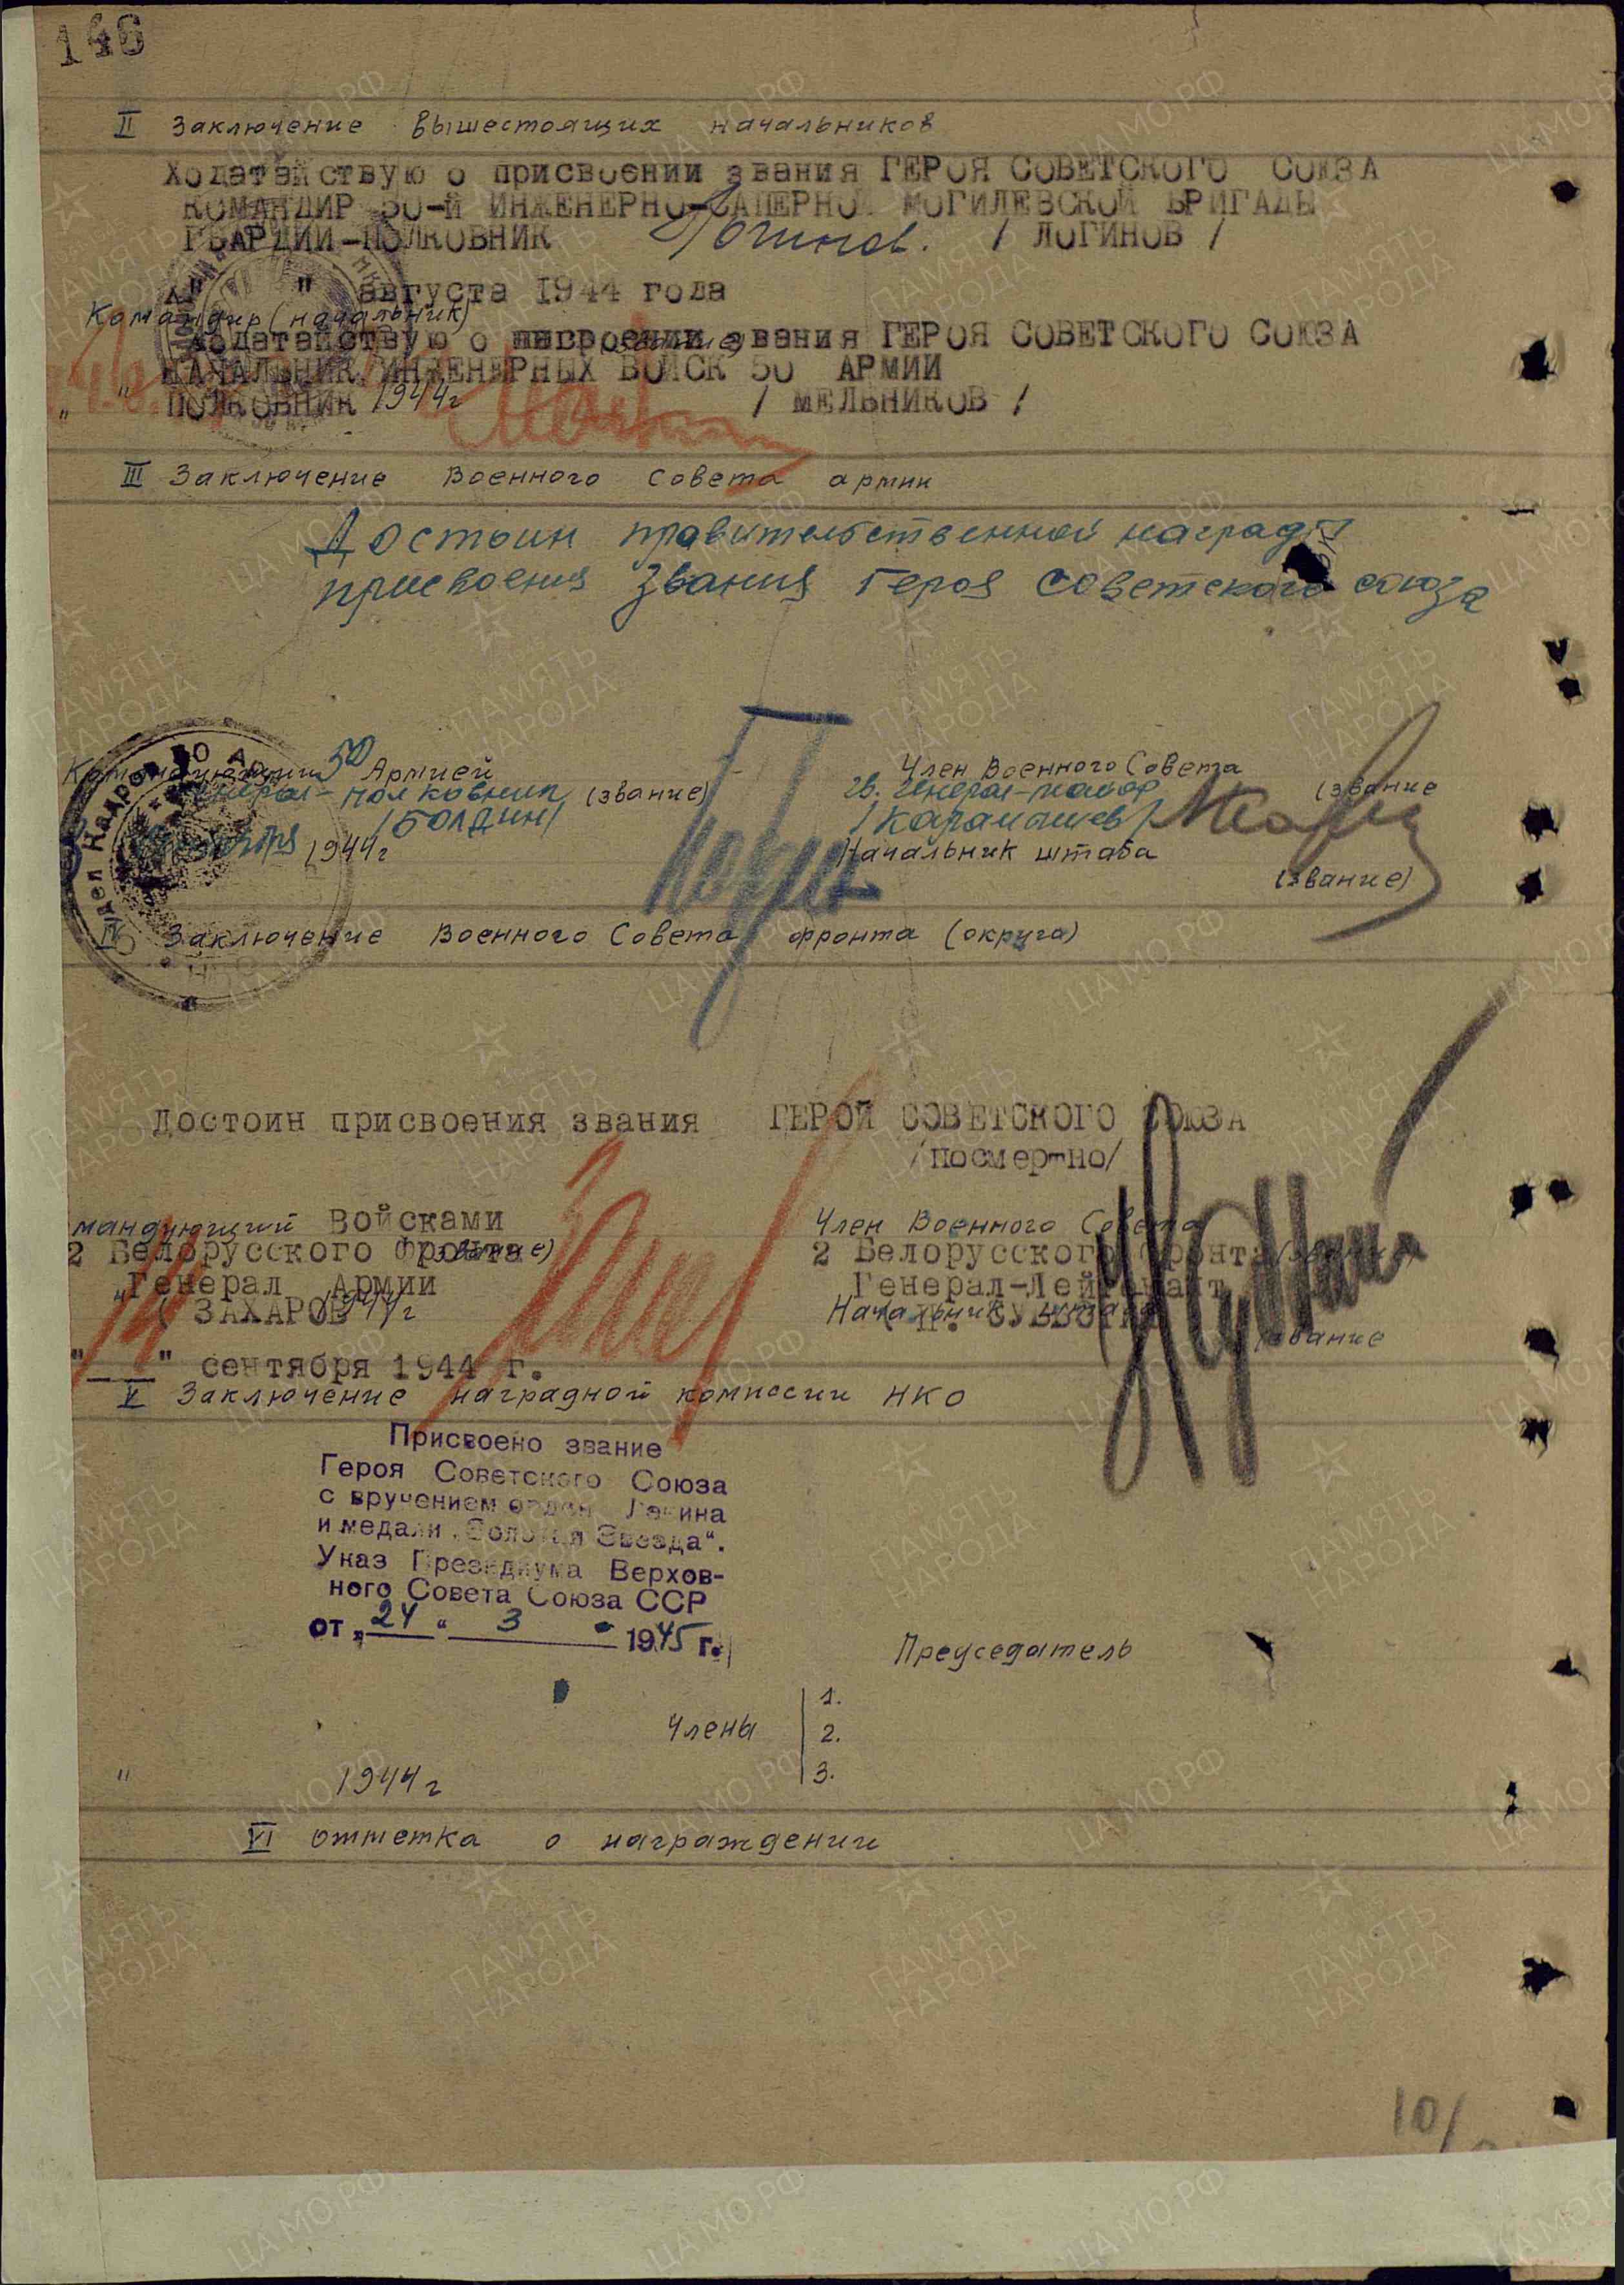 146
II Заключение вышестоящих начальников
Ходатайствую о присвоении звания ГЕРОЯ СОВЕТСКОГО СОЮЗА
КОМАНДИР 50-й ИНЖЕНЕРНО-САПЕРНОЙ МОГИЛЕВСКОЙ БРИГАДЫ
ГВАРДИИ-ПОЛКОВНИК Логинов. / ЛОГИНОВ /
" " августа 1944 года
Командир (начальник)
Ходатайствую о присвоении звания ГЕРОЯ СОВЕТСКОГО СОЮЗА
НАЧАЛЬНИК ИНЖЕНЕРНЫХ ВОЙСК 50 АРМИИ
" " ПОЛКОВНИК 1944г / МЕЛЬНИКОВ /
III Заключение Военного Совета армии
Достоин правительственной награды
присвоения звания Героя Советского союза
Командующий 50 Армией
генерал-полковник (звание)
/БОЛДИН/
1944г
Член Военного Совета
гв. генерал-майор (звание
/Карамышев/
Начальник штаба
(звание)
Отдел Кадров 50 А
IV Заключение Военного Совета фронта (округа)
Достоин присвоения звания ГЕРОЙ СОВЕТСКОГО СОЮЗА
/посмертно/
мандующий Войсками
2 Белорусского Фронта
Генерал Армии
( ЗАХАРОВ 1944г
"14" сентября 1944 г.
Член Военного Совета
2 Белорусского Фронта
Генерал-Лейтенант
Начальник штаба
звание
V Заключение наградной комиссии НКО
Присвоено звание
Героя Советского Союза
с вручением орден Ленина
и медали „Золотая Звезда".
Указ Президиума Верхов-
ного Совета Союза ССР
от „24" 3 1945 г.
Председатель
Члены
1.
2.
3.
" 1944г
VI отметка о награждении
10/
ПАМЯТЬ НАРОДА
ЦА МО РФ